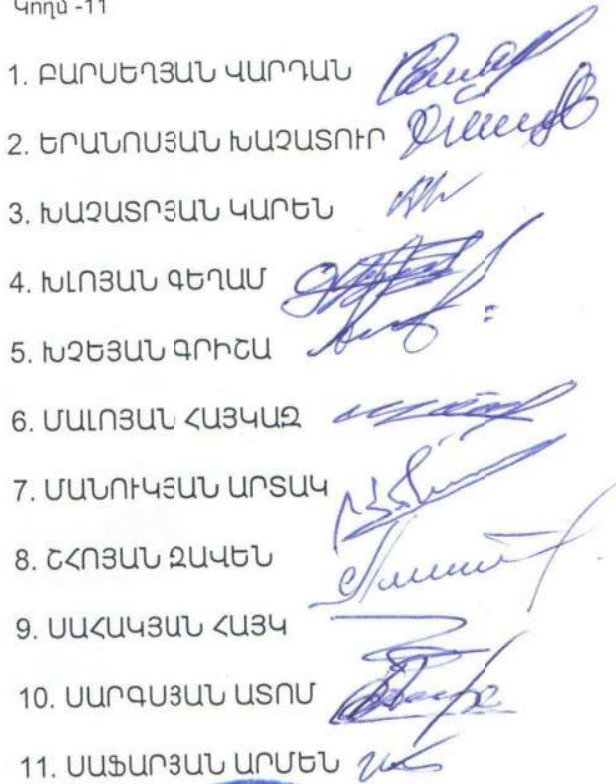 Կողմ -11
1. ԲԱՐՍԵՂՅԱՆ ՎԱՐԴԱՆ
2. ԵՐԱՆՈՍՅԱՆ ԽԱՉԱՏՈՒՐ
3. ԽԱՉԱՏՐՅԱՆ ԿԱՐԵՆ
4. ԽԼՈՅԱՆ ԳԵՂԱՄ
5. ԽՉԵՅԱՆ ԳՐԻՇԱ
6. ՄԱԼՈՅԱՆ ՀԱՅԿԱԶ
7. ՄԱՆՈՒԿՅԱՆ ԱՐՏԱԿ
8. ՇՀՈՅԱՆ ԶԱՎԵՆ
9. ՍԱՀԱԿՅԱՆ ՀԱՅԿ
10. ՍԱՐԳՍՅԱՆ ԱՏՈՄ
11. ՍԱՖԱՐՅԱՆ ԱՐՄԵՆ